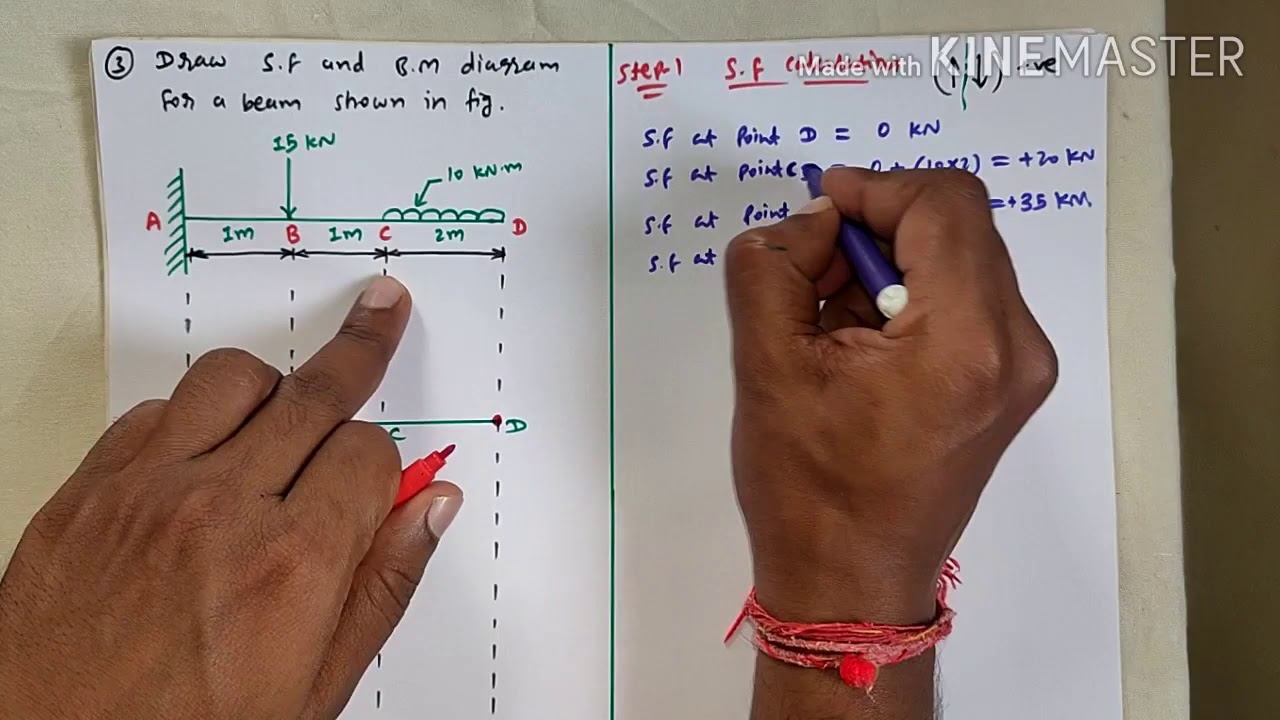 ③ Draw S.F and B.M diagram
for a beam shown in fig.
15 KN
10 KN.m
A
1m B 1m C 2m D
C D
Step-1 S.F
Made with KINEMASTER
(↑↓) -ve
S.F at Point D = 0 KN
S.F at Point C = 0 + (10×2) = +20 KN
S.F at Point = +35 KN.
S.F at